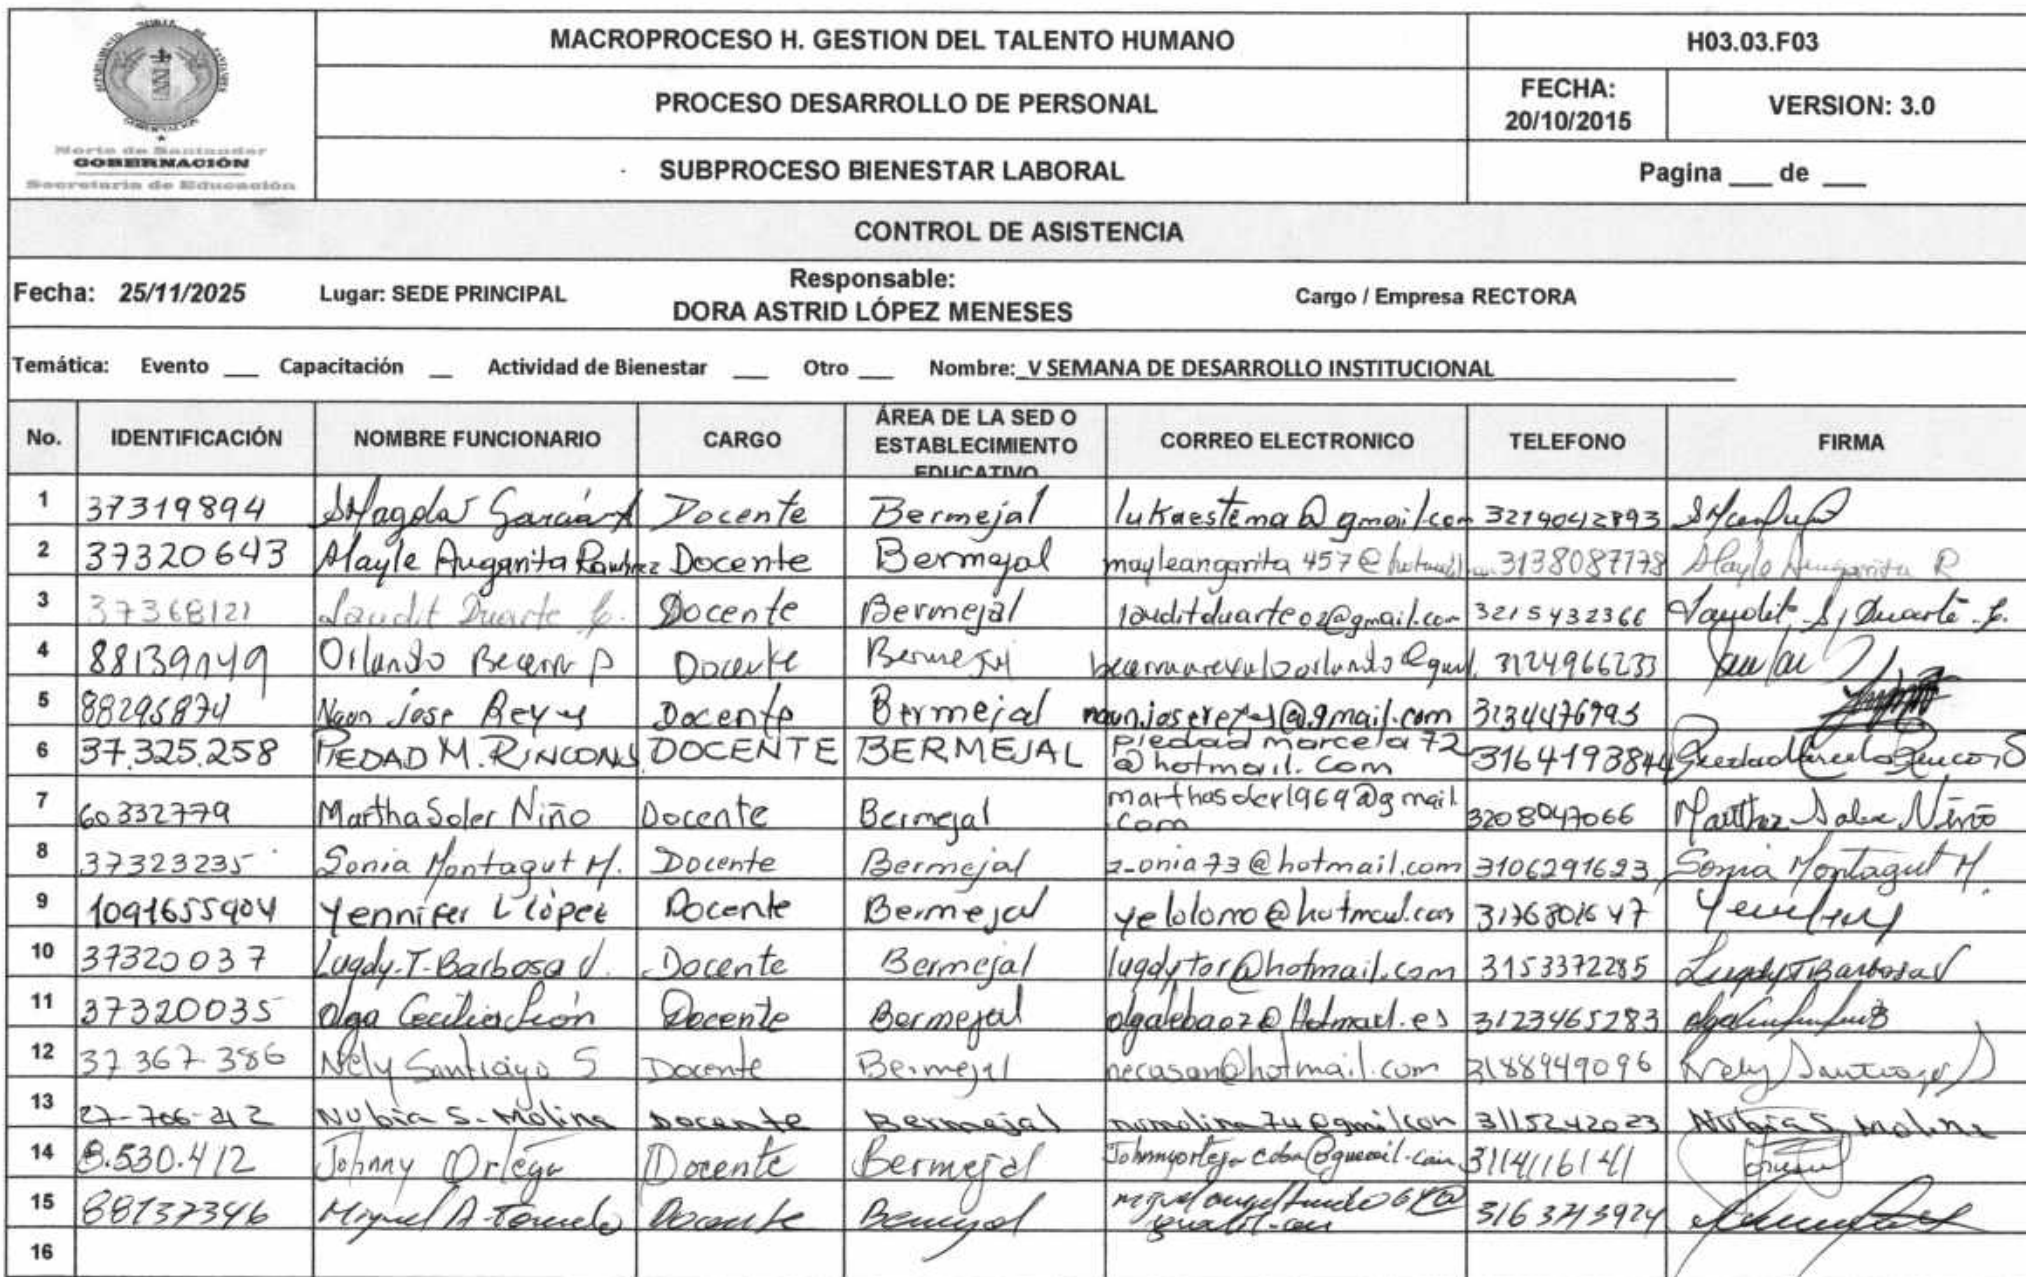 Norte de Santander
GOBERNACIÓN
Secretaria de Educación
MACROPROCESO H. GESTION DEL TALENTO HUMANO
H03.03.F03
PROCESO DESARROLLO DE PERSONAL
FECHA: 20/10/2015
VERSION: 3.0
SUBPROCESO BIENESTAR LABORAL
Pagina ___ de ___
CONTROL DE ASISTENCIA
Fecha: 25/11/2025 Lugar: SEDE PRINCIPAL Responsable: DORA ASTRID LÓPEZ MENESES Cargo / Empresa RECTORA
Temática: Evento ___ Capacitación __ Actividad de Bienestar ___ Otro ___ Nombre: V SEMANA DE DESARROLLO INSTITUCIONAL
No. IDENTIFICACIÓN NOMBRE FUNCIONARIO CARGO ÁREA DE LA SED O ESTABLECIMIENTO EDUCATIVO CORREO ELECTRONICO TELEFONO FIRMA
1 37319894 Magda García Docente Bermejal
2 37320643 Mayle Angarita Ramírez Docente Bermejal mayleangarita457@hotmail 3138087178 Mayle Angarita R
3 37368121 Laudit Duarte Docente Bermejal lauditduarte02@gmail.com 3215432366 Laudit Duarte
4 Orlando Docente Bermejal 3124966233
5 88295874 Naun Jose Reyes Docente Bermejal naunjosereyes@gmail.com
6 37.325.258 PIEDAD M. RINCON S DOCENTE BERMEJAL piedadmarcela72@hotmail.com 3164193844 Piedad Marcela Rincon S
7 60332779 Martha Soler Niño Docente Bermejal marthasoler1969@gmail.com 3208047066 Martha Soler Niño
8 37323235 Sonia Montagut M. Docente Bermejal z_onia73@hotmail.com 3106291623 Sonia Montagut M.
9 1091655904 Yennifer L López Docente Bermejal yelolomo@hotmail.com
10 37320037 Lugdy.T.Barbosa V. Docente Bermejal lugdytor@hotmail.com 3153372285 Lugdy T Barbosa V
11 37320035 Olga Cecilia León Docente Bermejal 3123465283
12 37367386 Nely Santiago S Docente Bermejal necasan@hotmail.com 3188949096 Nely Santiago S
13 Nubia S. Molina Docente Bermejal 3115242023 Nubia S. Molina
14 8.530.412 Johnny Ortega Docente Bermejal 3114116141
15 88137346 Miguel A. Docente Bermejal
16